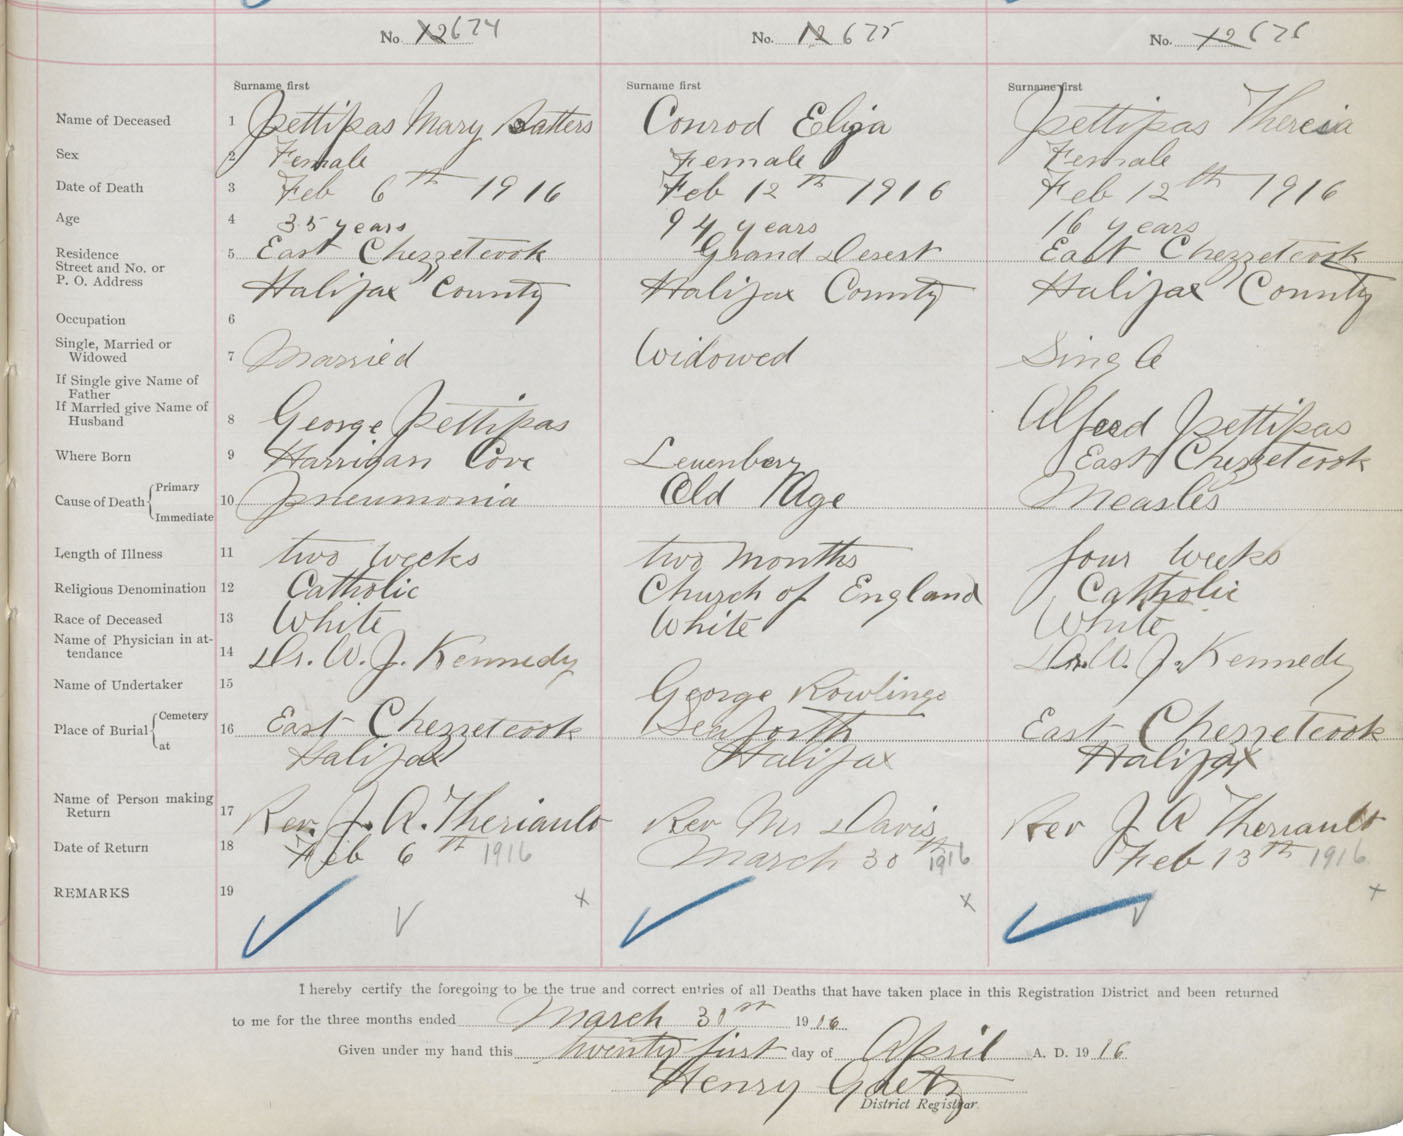 No. 12674 No. 12675 No. 12676
Surname first Surname first Surname first
Name of Deceased 1 Pettipas Mary Conrod Eliza Pettipas Theresia
Sex 2 Female Female Female
Date of Death 3 Feb 6th 1916 Feb 12th 1916 Feb 12th 1916
Age 4 35 years 94 years 16 years
Residence 5 East Chezzetcook Grand Desert East Chezzetcook
Street and No. or
P. O. Address Halifax County Halifax County Halifax County
Occupation 6
Single, Married or
Widowed 7 Married Widowed Single
If Single give Name of
Father
If Married give Name of
Husband 8 George Pettipas Alfred Pettipas
Where Born 9 Harrigan Cove Leuenberg East Chezzetcook
Cause of Death { Primary
Immediate 10 pneumonia Old Age Measles
Length of Illness 11 two weeks two months four weeks
Religious Denomination 12 Catholic Church of England Catholic
Race of Deceased 13 White White White
Name of Physician in at-
tendance 14 Dr. W. J. Kennedy Dr. W. J. Kennedy
Name of Undertaker 15 George Rowlings
Place of Burial { Cemetery
at 16 East Chezzetcook Seaforth East Chezzetcook
Halifax Halifax Halifax
Name of Person making
Return 17 Rev. J. A. Theriault Rev Mr Davis Rev J A Theriault
Date of Return 18 Feb 6th 1916 March 30th 1916 Feb 13th 1916
REMARKS 19 x x x
I hereby certify the foregoing to be the true and correct entries of all Deaths that have taken place in this Registration District and been returned
to me for the three months ended March 31st 1916
Given under my hand this twenty first day of April A. D. 1916
Henry Gaetz
District Registrar.